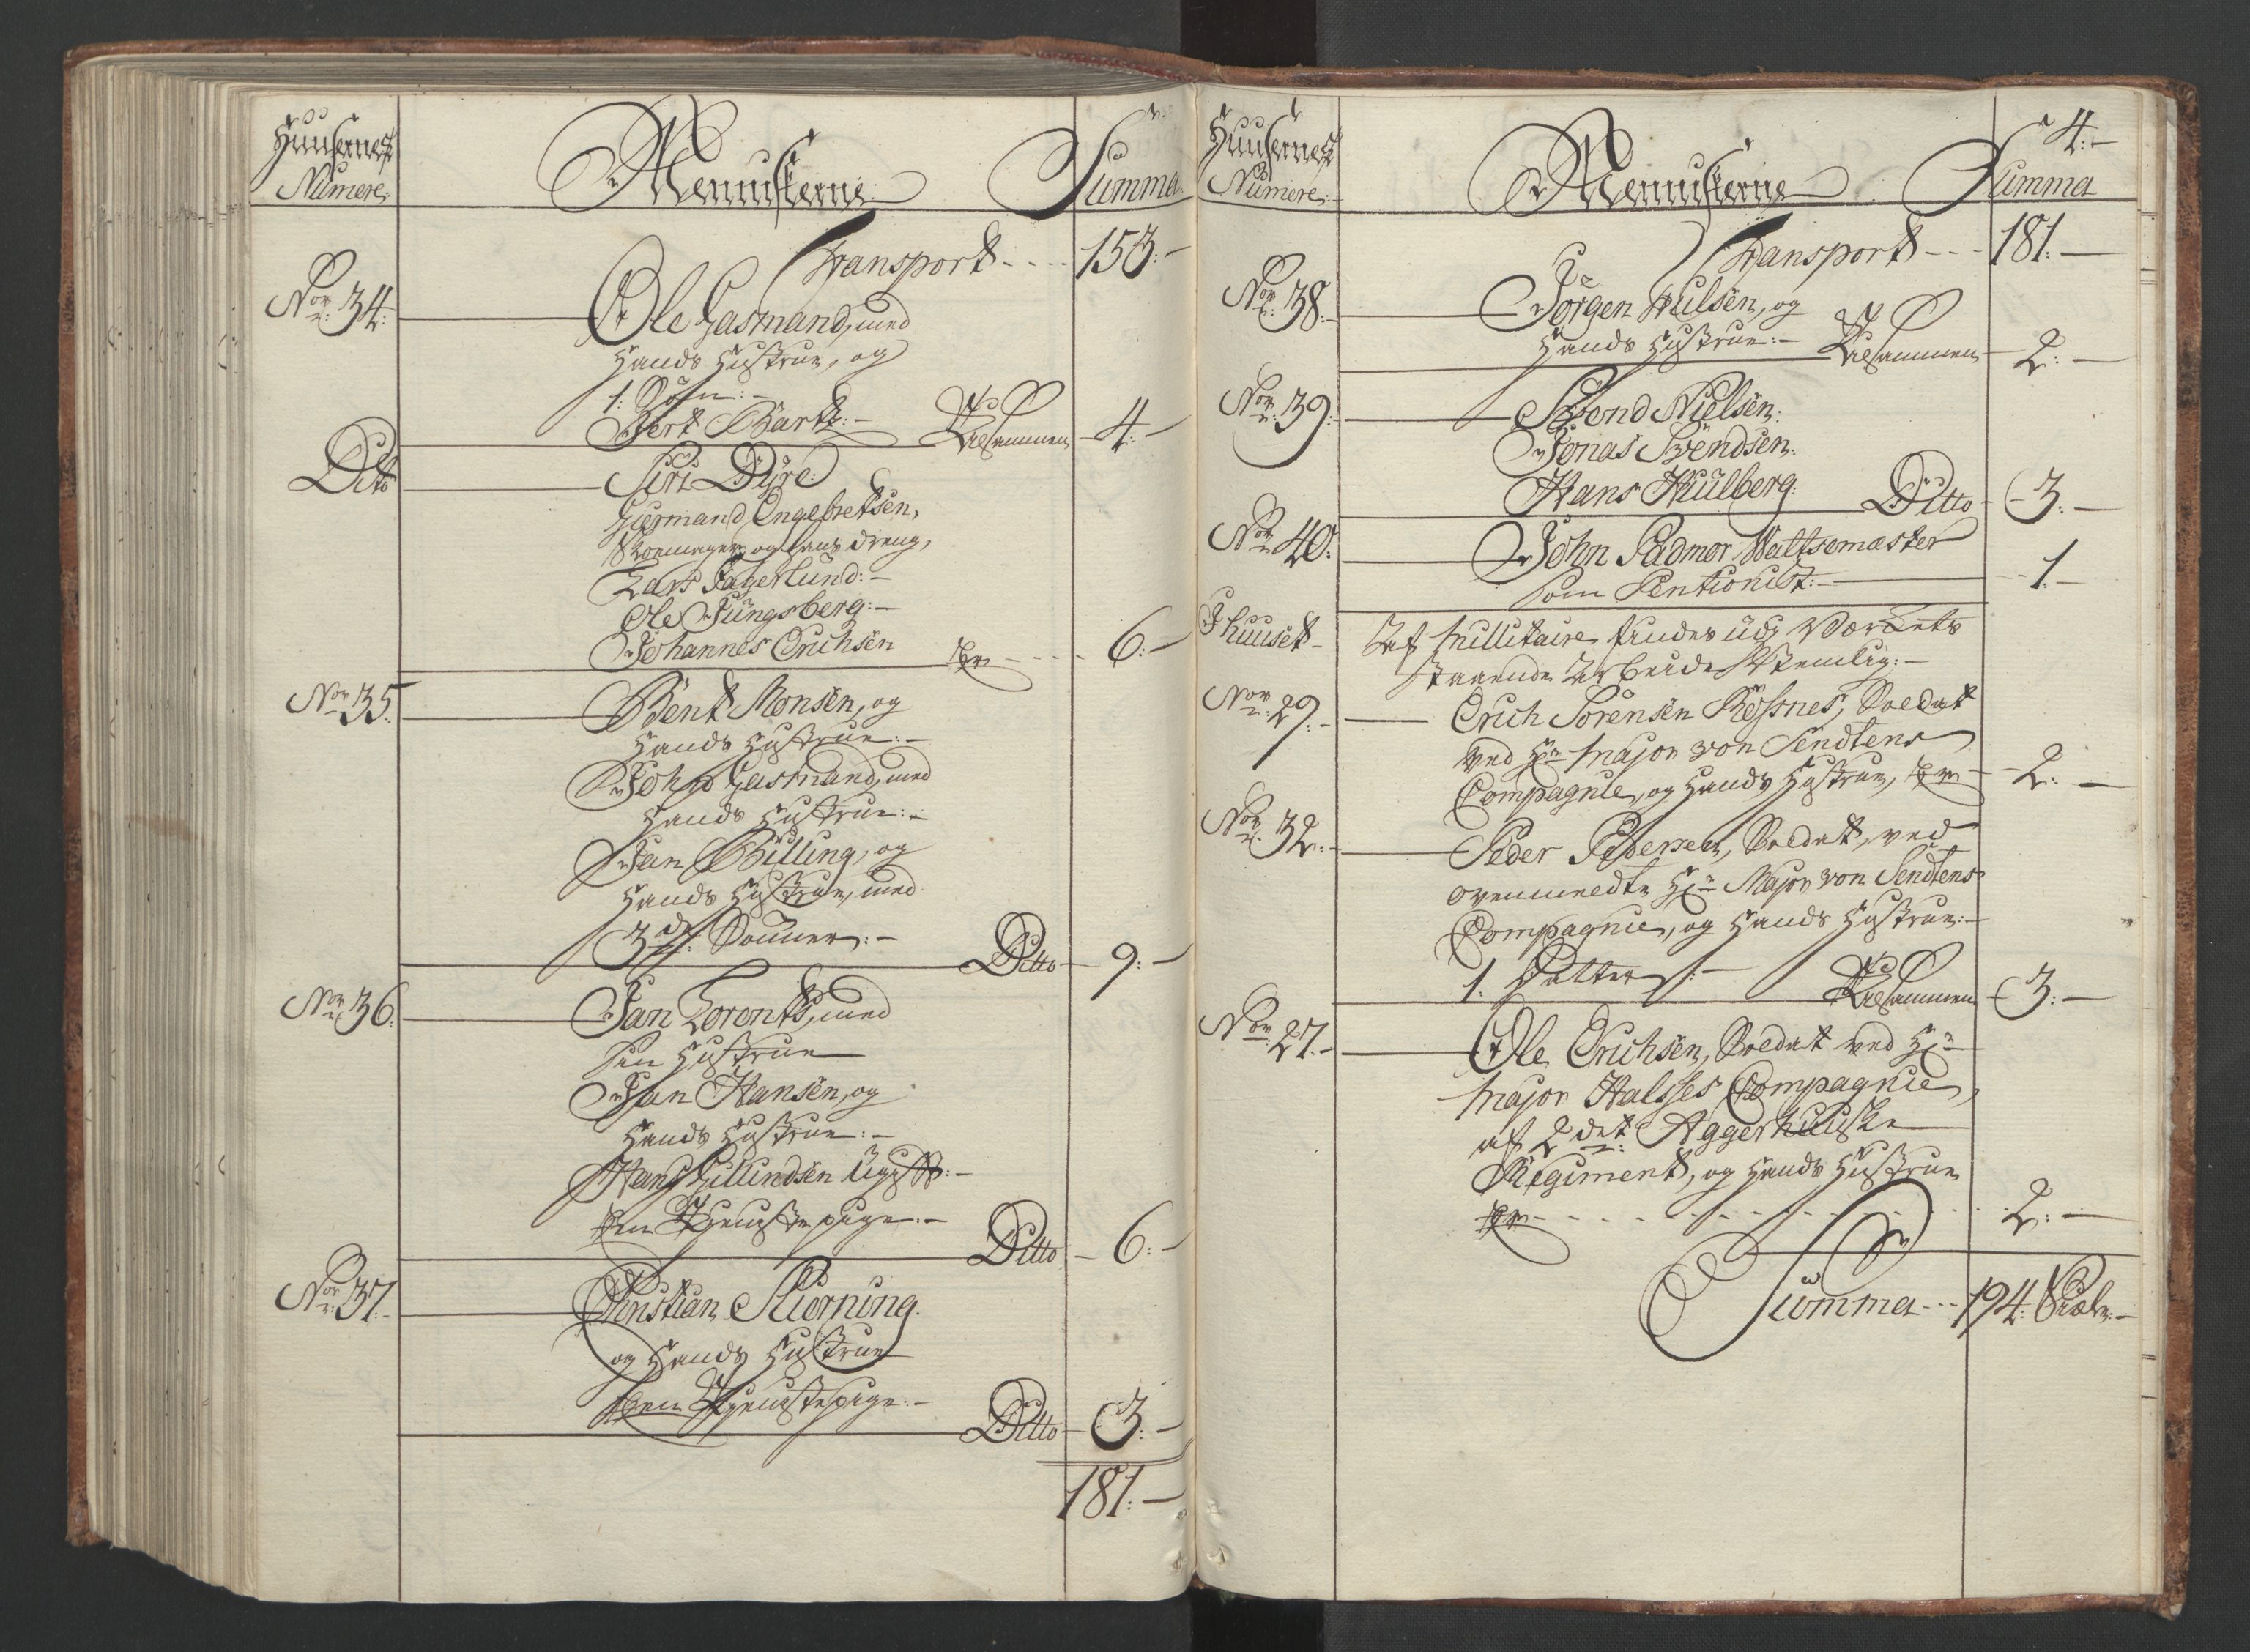 Huusernes
Numere:
Menniskerne
Summa
Transport - - - - 153:-
No: 34: Ole Gasmand, med
Hands Hustrue, og
1: Søn:-
Bert Bartt:- Tilsammen - 4:-
Dito Siri Dyre:
Giermand Engebretsen,
Skoemager og hans dreng,
Lars Fagerlund:-
Ole Fungsberg:-
Johannes Erichsen Er - - - - 6:-
No: 35: Bent Monsen, og
Hands Hustrue:-
John Gasmand, med
Hands Hustrue:-
Jan Billing, og
Hands Hustrue, med
3de: Sønner:- Ditto - 9:-
No: 36: Jan Lorents, med
sin Hustrue
Jan Hansen, og
Hands Hustrue:-
Hans Gullindsen Ugift:-
En Tieniste pige:- Ditto - 6:-
No: 37: Christian Kiorning.
og Hands Hustrue
En Tienistepige:- Ditto - 3:-
181:-
4:-
Huusernes
Numere:-
Menniskerne
Summa
Transport - - - 181:-
No: 38:- Jörgen Hulsen, og
Hands Hustrue:- Tilsammen - 2:-
No: 39: Svend Nielsen:
Jonas Svendsen:
Hans Hülberg: Ditto - 3:-
No: 40: John Padmor Waltsemæster
som Pentionist:- 1:-
I huuset - Af Millitaire findes udj Værkets
staaende Arbeide Nemlig:-
No: 29:- Erich Sørensen Røssnes, Soldat
ved Hr: Major von Sendtens
Compagnie, og Hands Hustrue, Er - 2:-
No: 32:- Peder Pedersen, Soldat, ved
ovenmeldte Hr: Major von Sendtens
Compagnie, og Hands Hustrue:-
1: Datter:- Tilsammen - 3:-
No: 27:- Ole Erichsen, Soldat ved Hr:
Major Halsses Compagnie,
af 2det: Aggerhuuske
Regiment, og Hands Hustrue
Er - - - - - - - - 2:-
Summa - - - 194: Siæle:-